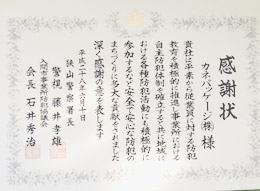 感謝状
カネパッケージ(株) 様
貴社は平素から従業員に対する防犯
教育を積極的に推進し事業所における
自主防犯体制を確立すると共に地域に
おける各種防犯活動にも積極的に
参加するなど安全で安心な防犯の
まちづくりに多大な貢献をされました
深く感謝の意を表します
平成二十八年六月十日
狭山警察署長
警視 藤井孝雄
入間市事業所防犯協議会
会長 石井秀治